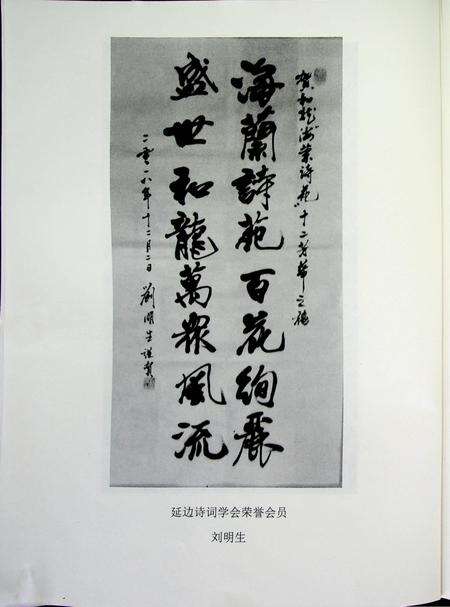 贺和龙海兰诗苑十二
海蘭詩苑百花絢麗
盛世和龍萬眾風流
二零一八年十二月二日 劉明生謹賀
延边诗词学会荣誉会员
刘明生